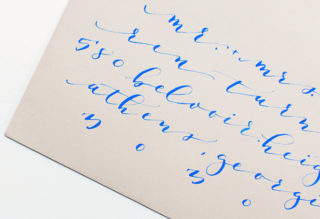 mr. mrs.
ren turn
580 belvoir heig
athens, georgi